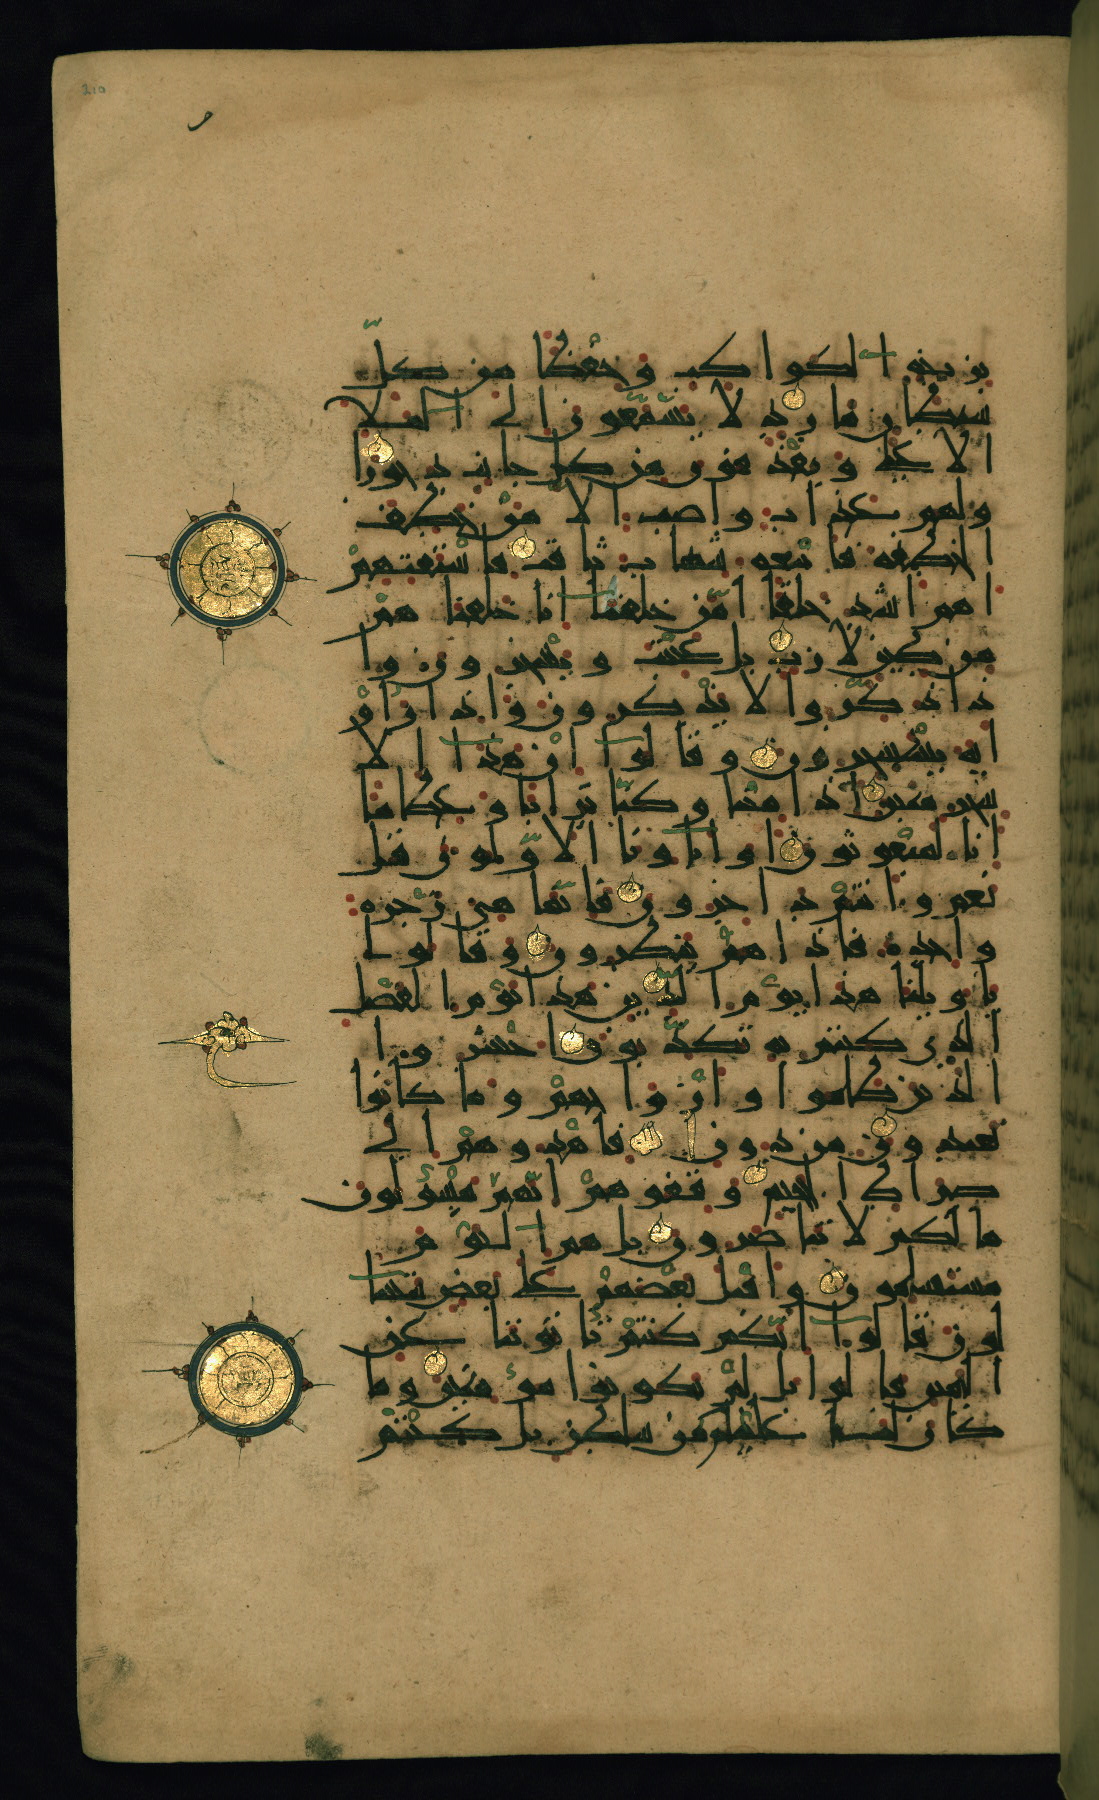 210
بزينة الكواكب وحفظا من كلّ
شيطان مارد لا يسّمّعون الى الملا
الاعلى ويقذفون من كل جانب دحورا
ولهم عذاب واصب الا من خطف
الخطفة فاتبعه شهاب ثاقب فاستفتهم
اهم اشد خلقا امّن خلقنا انا خلقنا هم
من طين لازب بل عجبت ويسخرون وا
ذا ذكّروا لا يذكرون واذا راو
اية يستسخرون وقالوا ان هذا الا
سحر مبين اذا متنا وكنّا ترابا وعظاما
انا لمبعوثون اواباونا الاوّلون قل
نعم وانتم داخرون فانّما هي زجرة
واحدة فاذا هم ينظرون وقالوا
يا ويلنا هذا يوم الدّين هذا يوم الفصل
الذى كنتم به تكذّبون احشروا
الذين ظلموا وازواجهم وما كانوا
يعبدون من دون الله فاهدوهم الى
صراط الجحيم وقفوهم انّهم مسئولون
ما لكم لا تناصرون بل هم اليوم
مستسلمون واقبل بعضهم على بعض يتسا
لون قالوا انّكم كنتم تاتوننا عن
اليمين قالوا بل لم تكونوا مؤمنين وما
كان لنا عليكم من سلطن بل كنتم